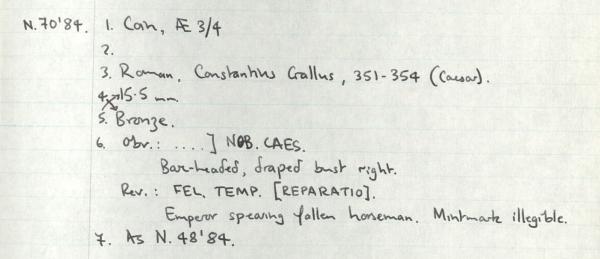 N.70'84. 1. Coin, Æ 3/4
2.
3. Roman, Constantius Gallus, 351-354 (Caesar).
4. 15.5 mm.
5. Bronze.
6. Obv.: ....] NOB. CAES.
Bare-headed, draped bust right.
Rev.: FEL. TEMP. [REPARATIO].
Emperor spearing fallen horseman. Mintmark illegible.
7. As N. 48'84.